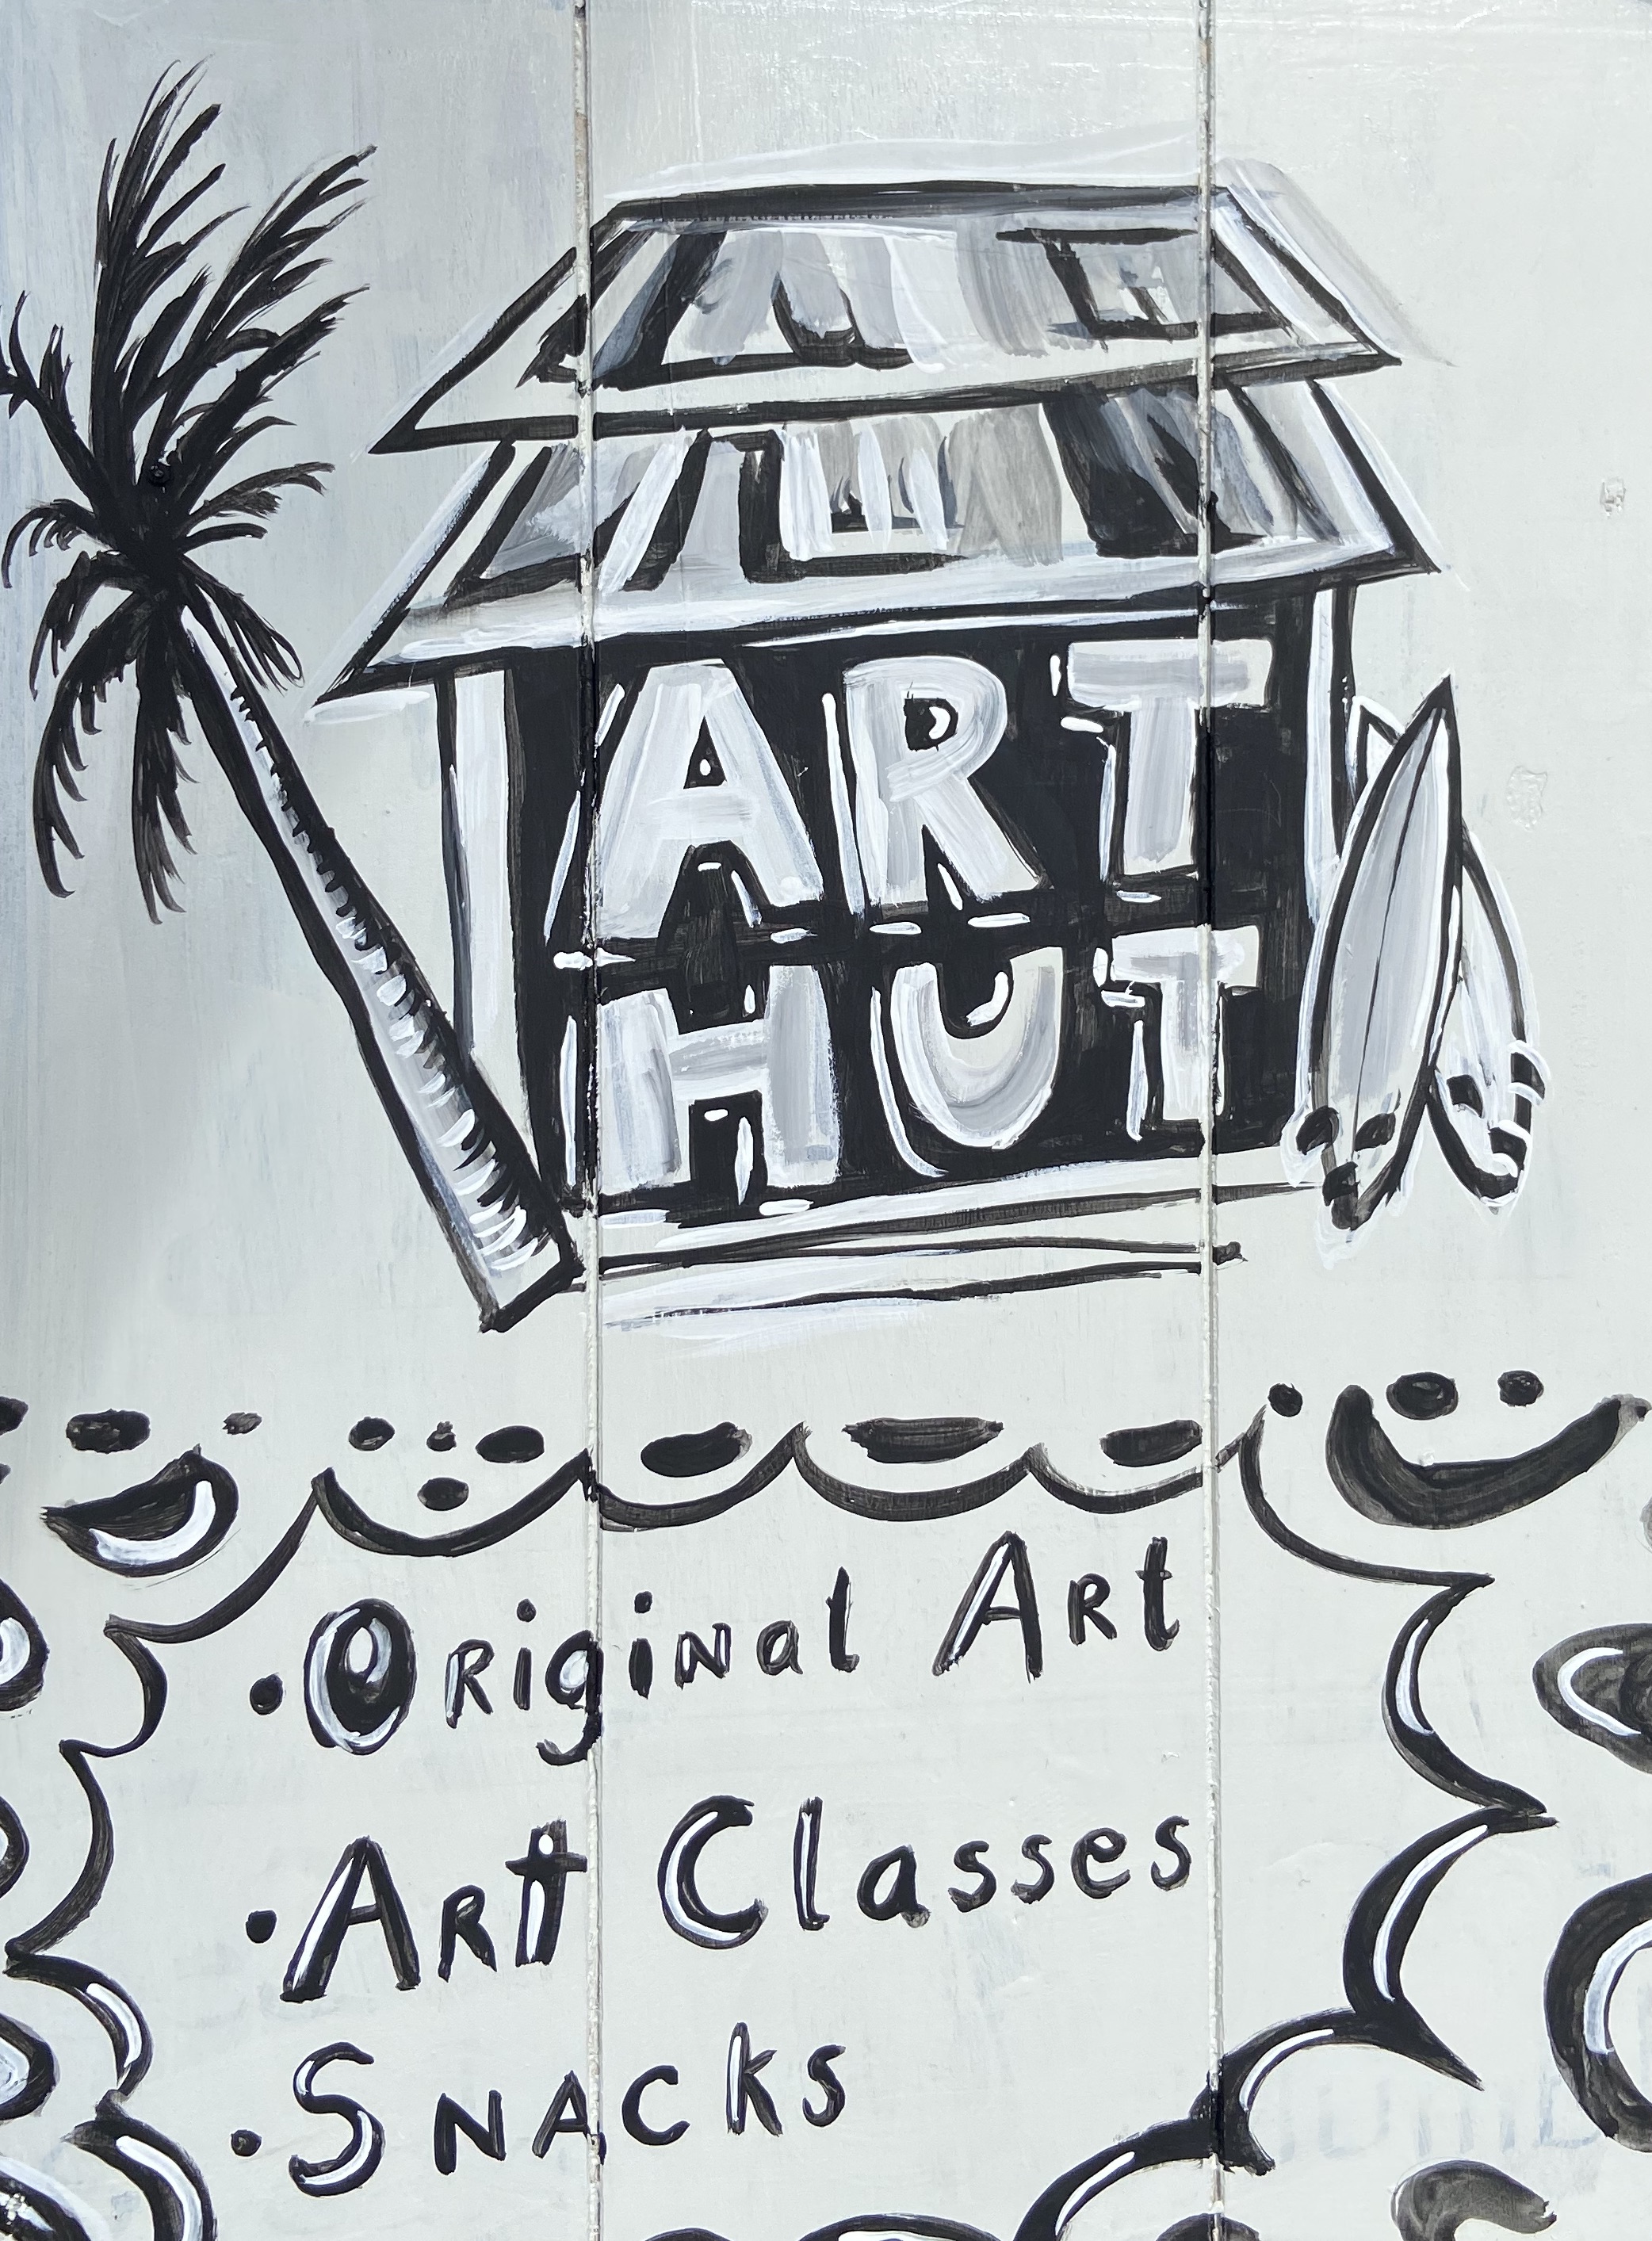 ART
HUT
• Original Art
• Art Classes
• Snacks